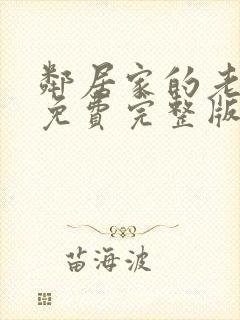 鄰居家的老
免費完整版
苗海波